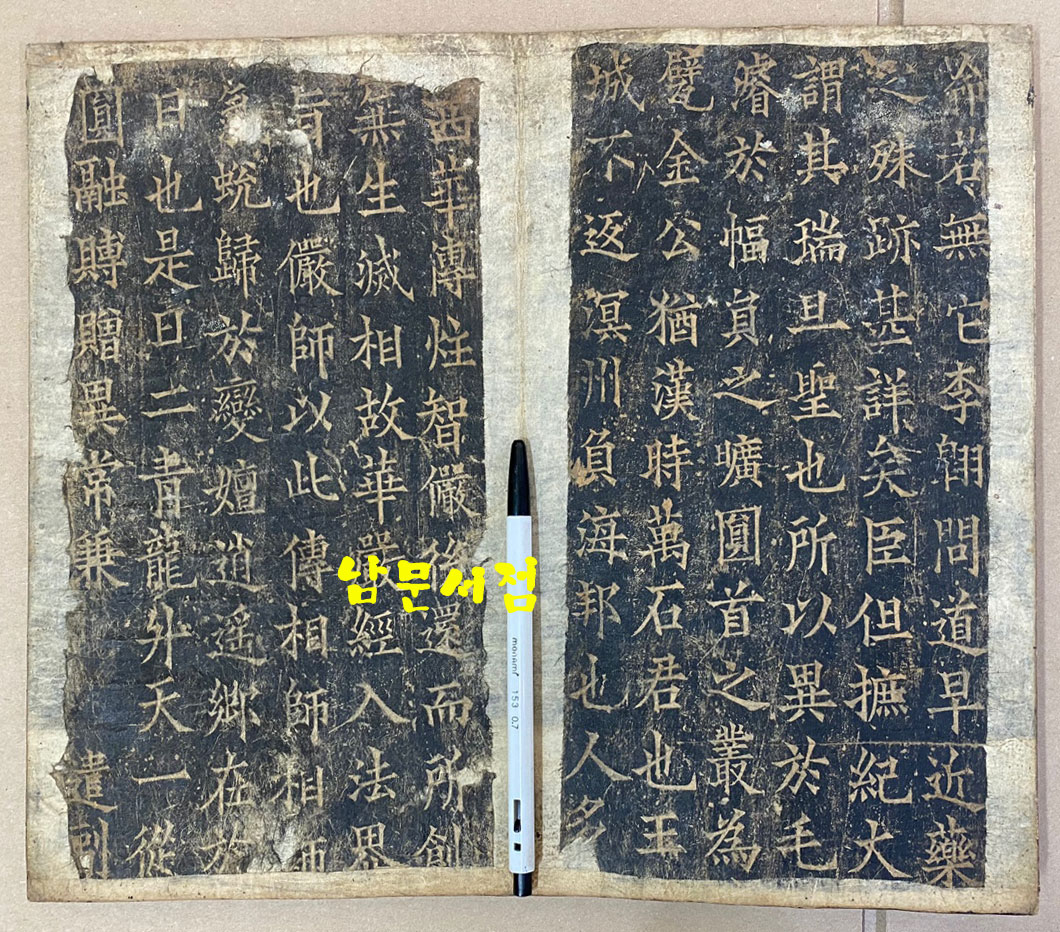 若無它李翶問道早近藥
之殊跡甚詳矣臣但摭紀大
謂其瑞旦聖也所以異於毛
濬於幅員之曠圓首之叢為
金公猶漢時萬石君也王
城不返溟州負海邦也人多
西華傳性智儼後還而所創
無生滅相故華嚴經入法界
旨也儼師以此傳相師相師
蛻歸於變嬗逍遙鄉在於
日也是日二青龍升天一從
圓融賻贈異常兼 遣到
남문서점
monami 153 0.7